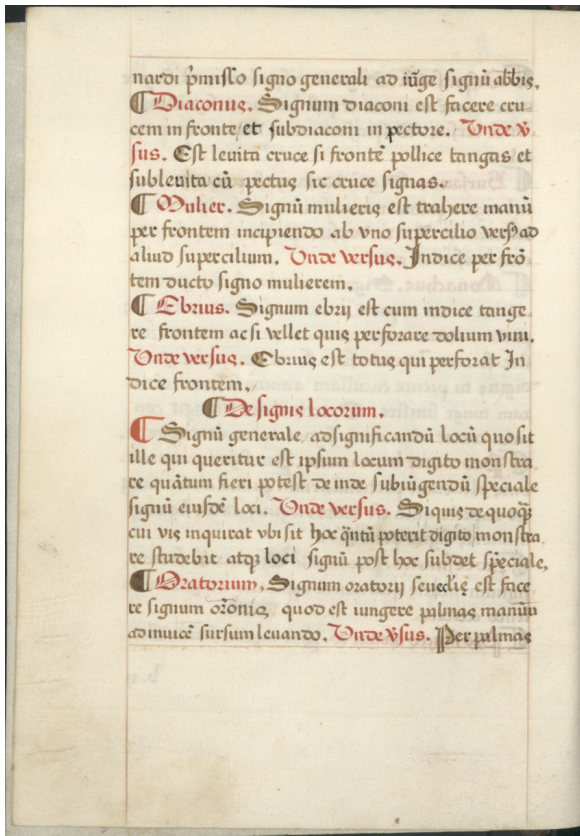 nardi p̄misso signo generali ad iūge signū abb̄is.
¶ Diaconus. Signum diaconi est facere cru-
cem in fronte et subdiaconi in pectore. Vnde v̄-
sus. Est leuita cruce si frontē pollice tangas et
subleuita cū pectus sic cruce signas.
¶ Mulier. Signū mulieris est trahere manū
per frontem incipiendo ab vno supercilio versꝰ ad
aliud supercilium. Vnde versus. Indice per frō
tem ducto signo mulierem.
¶ Ebrius. Signum ebrij est cum indice tange-
re frontem ac si vellet quis perforare dolium vini.
Vnde versus. Ebrius est totus qui perforat In
dice frontem.
¶ De signis locorum.
¶ Signū generale ad significandū locū quo sit
ille qui queritur est ipsum locum digito monstra
re quātum fieri potest deinde subiūgendū speciale
signū eiusdē loci. Vnde versus. Si quis de quoqȝ
cui vis inquirat vbi sit hoc q̄ntū poterit digito monstra
re studebit atqȝ loci signū post hoc subdet speciale,
¶ Oratorium. Signum oratorij seu ecclīe est face
re signum or̄onis quod est iungere palmas manuū
ad inuicē sursum leuando. Vnde v̄sus. Per palmas